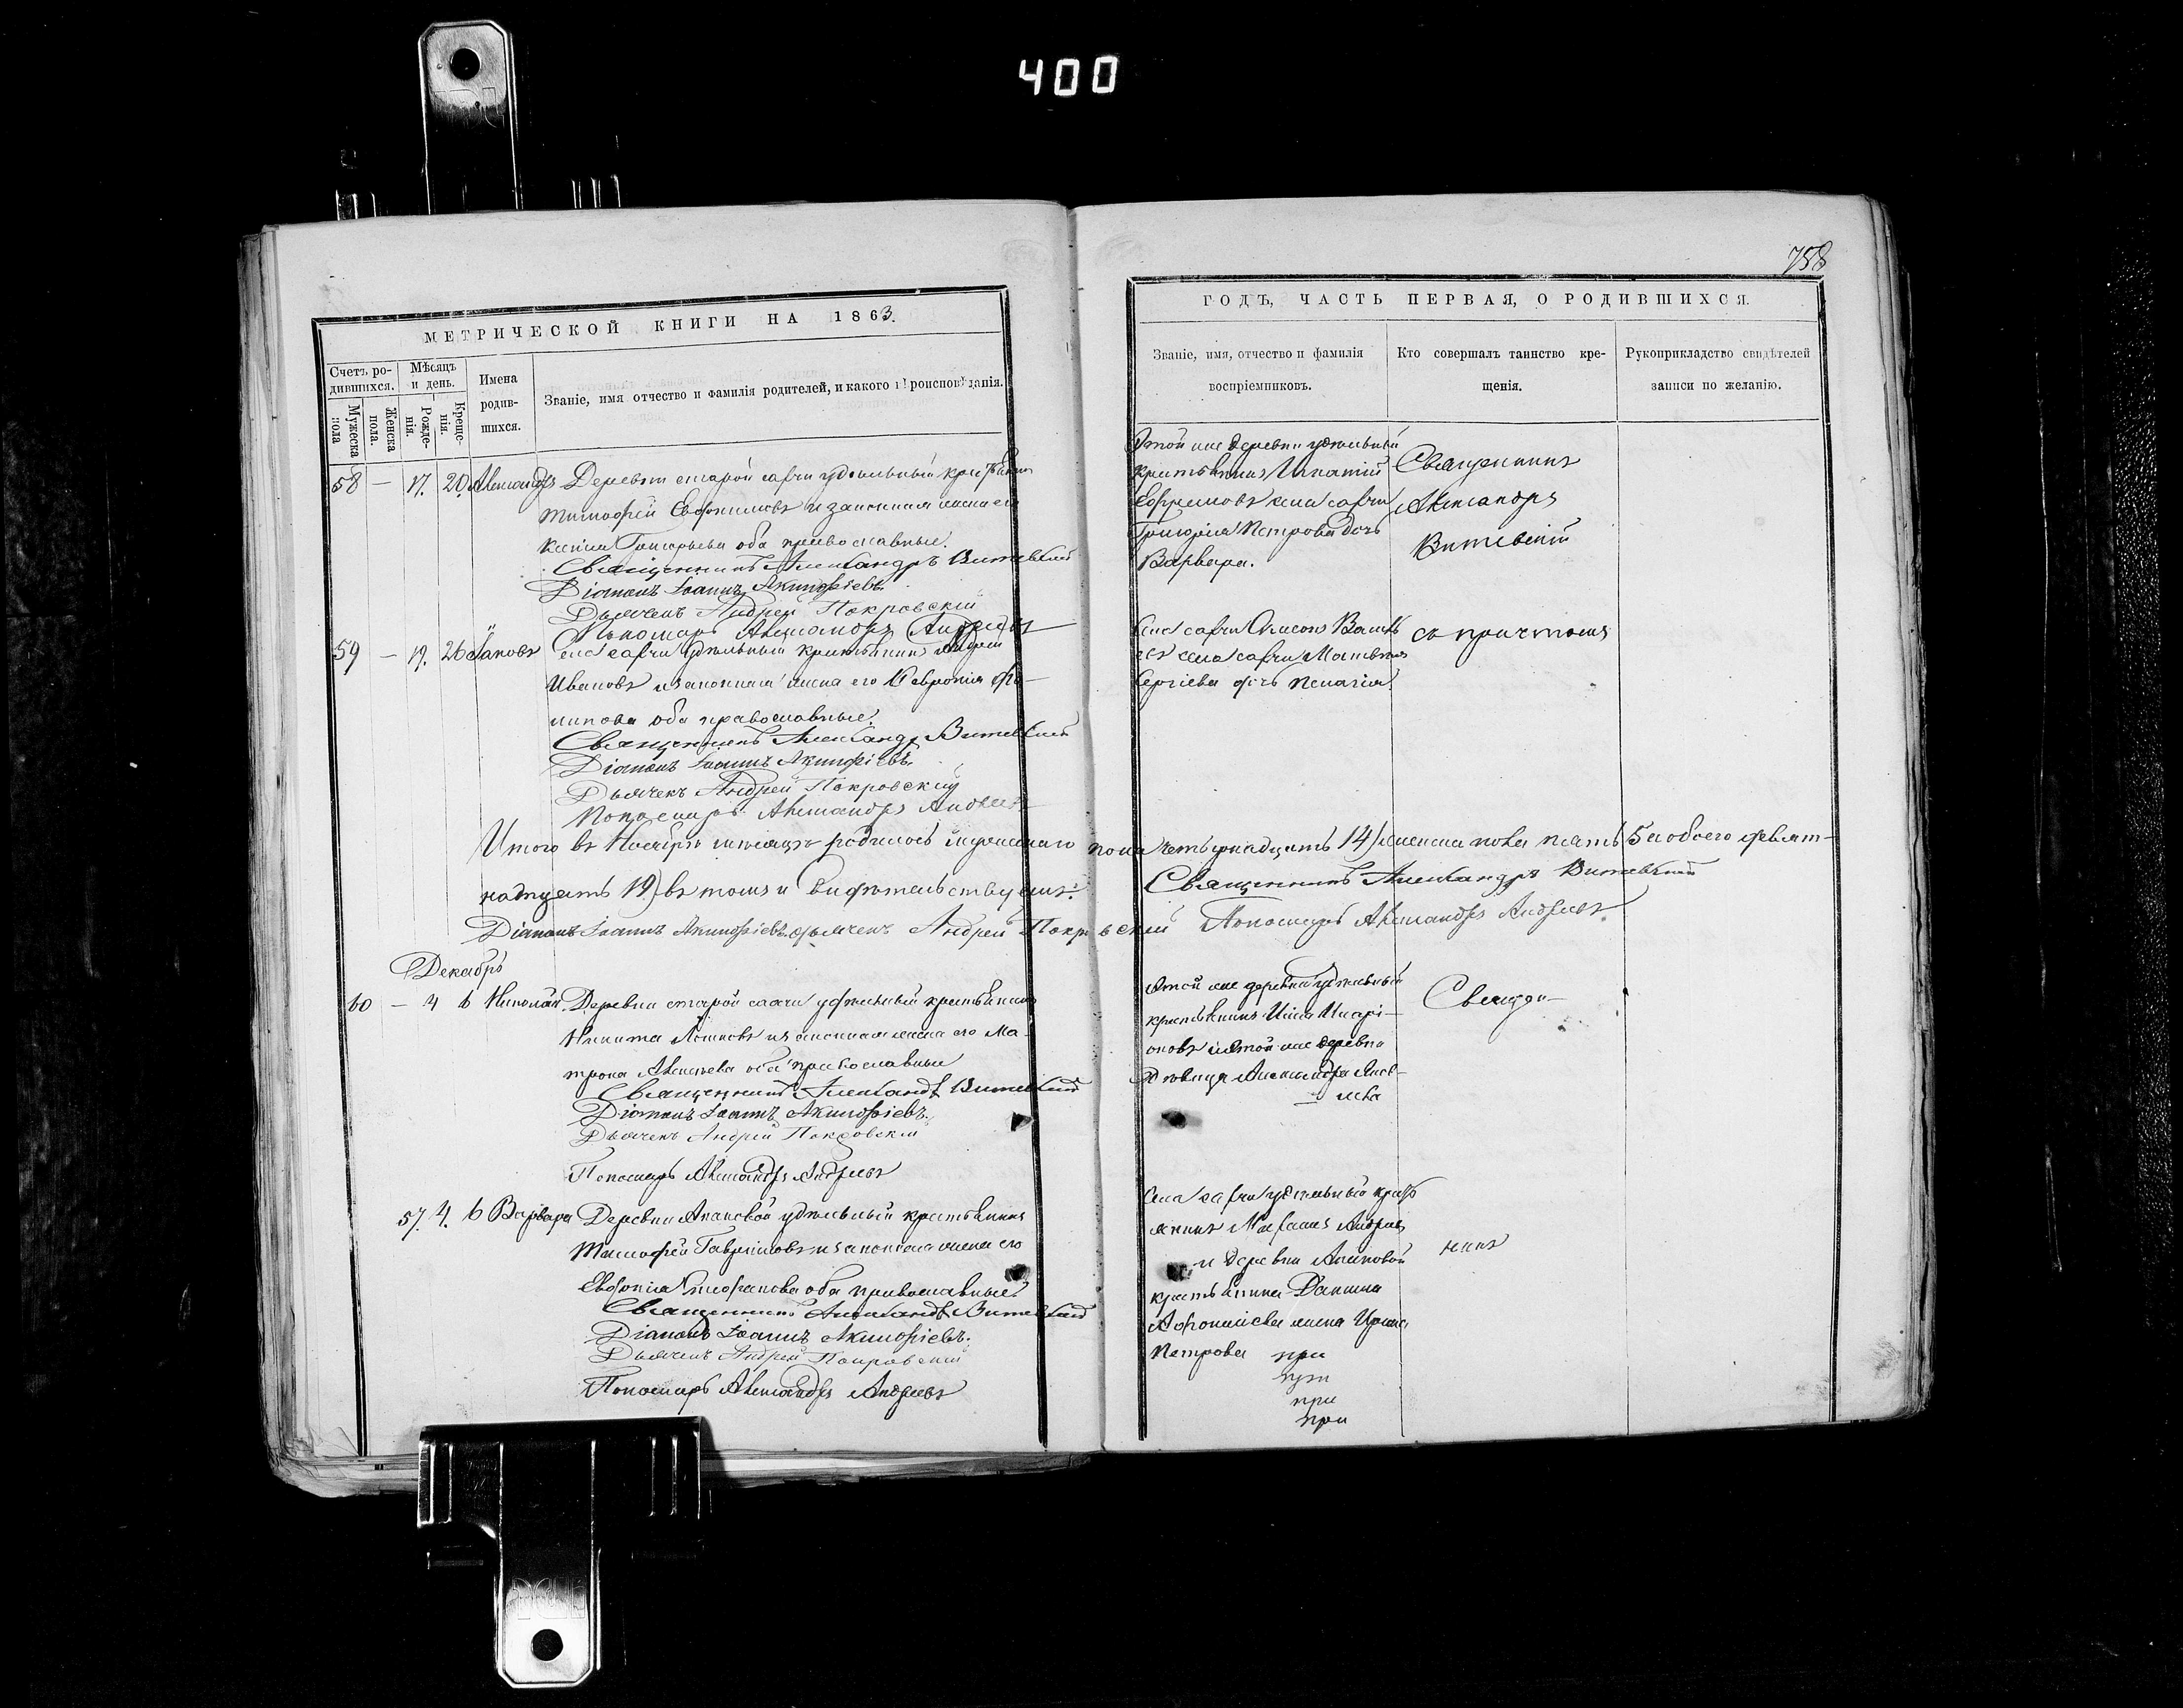 400
758
МЕТРИЧЕСКОЙ КНИГИ НА 1863.
Счетъ ро-
дившихся.
Мѣсяцъ
и день.
Имена
родив-
шихся.
Званіе, имя отчество и фамилія родителей, и какого вѣроисповѣданія.
Мужеска
пола
Женска
пола.
Рожде-
нія.
Креще-
нія.
58 — 17. 20. Александръ Деревни старой удѣльный крестьянинъ
Тимофей и законная жена его
Григорьева оба православные.
Священникъ Александръ Витевскій
Діаконъ Іоаннъ Акинфіевъ.
Дьячекъ Андрей Покровскій
Пономарь Александръ Андреевъ
59 — 19. 26 Іаковъ села удѣльный крестьянинъ Андрей
Ивановъ и законная жена его Февронія Фи-
липова оба православные.
Священникъ Александръ Витевскій
Діаконъ Іоаннъ Акинфіевъ.
Дьячекъ Андрей Покровскій
Пономарь Александръ Андреевъ
Итого въ Ноябрѣ мѣсяцѣ родилось мужескаго
надцать 19) въ томъ и свидѣтельствуемъ:
Діаконъ Іоаннъ Акинфіевъ. дьячекъ Андрей Покровскій
Декабрь
60 — 4 6 Николай Деревни старой удѣльный крестьянинъ
Никита и законная жена его Ма-
трона Алексѣева оба православные
Священникъ Александръ Витевскій
Діаконъ Іоаннъ Акинфіевъ.
Дьячекъ Андрей Покровскій
Пономарь Александръ Андреевъ
57. 4. 6 Варвара Деревни удѣльный крестьянинъ
Тимофей Гавриловъ и законная жена его
оба православные
Священникъ Александръ Витевскій
Діаконъ Іоаннъ Акинфіевъ.
Дьячекъ Андрей Покровскій
Пономарь Александръ Андреевъ
ГОДЪ, ЧАСТЬ ПЕРВАЯ, О РОДИВШИХСЯ.
Званіе, имя, отчество и фамилія
воспріемниковъ.
Кто совершалъ таинство кре-
щенія.
Рукоприкладство свидѣтелей
записи по желанію.
Этой же деревни удѣльный
крестьянинъ Игнатій
Ефремовъ села
Григорія Петрова дочь
Варвара.
Священникъ
Александръ
Витевскій
Села
села
Сергіева дочь Пелагія.
съ причтомъ
пола четырнадцать 14) женска пола пять 5 и обоего девят-
Священникъ Александръ Витевскій
Пономарь Александръ Андреевъ.
Этой же деревни удѣльный
крестьянинъ Илья Иларі-
оновъ и этой же деревни
дѣвица Александра
Священ-
Села удѣльный крест
янинъ
и деревни
крестьянина Данила
жена Ирина
Петрова при
при
при
при
никъ